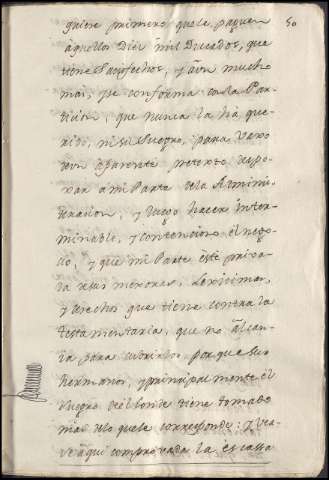 50
quiere primero que le paguen
aquellos Diez mil Ducados, que
tiene Satisfechos, y aun mucho
mas, se conforma con la Par-
ticion, que nunca la ha que-
rido, ni su Suegro, para vaxo
con aparente pretexto despo-
xar a mi Parte de la Admini-
tracion, y luego hacer inter-
minable, y contencioso el nego-
cio, y que mi Parte esté priva-
da de sus menores, Lexitimas,
y derechos que tiene contra la
testamentaria, que no alcan-
za para cubrirlos, porque sus
hermanos, y principalmente el
Suegro del Conde tiene tomado
mas de lo que le corresponde; y vea-
se aqui comprovada la escassa